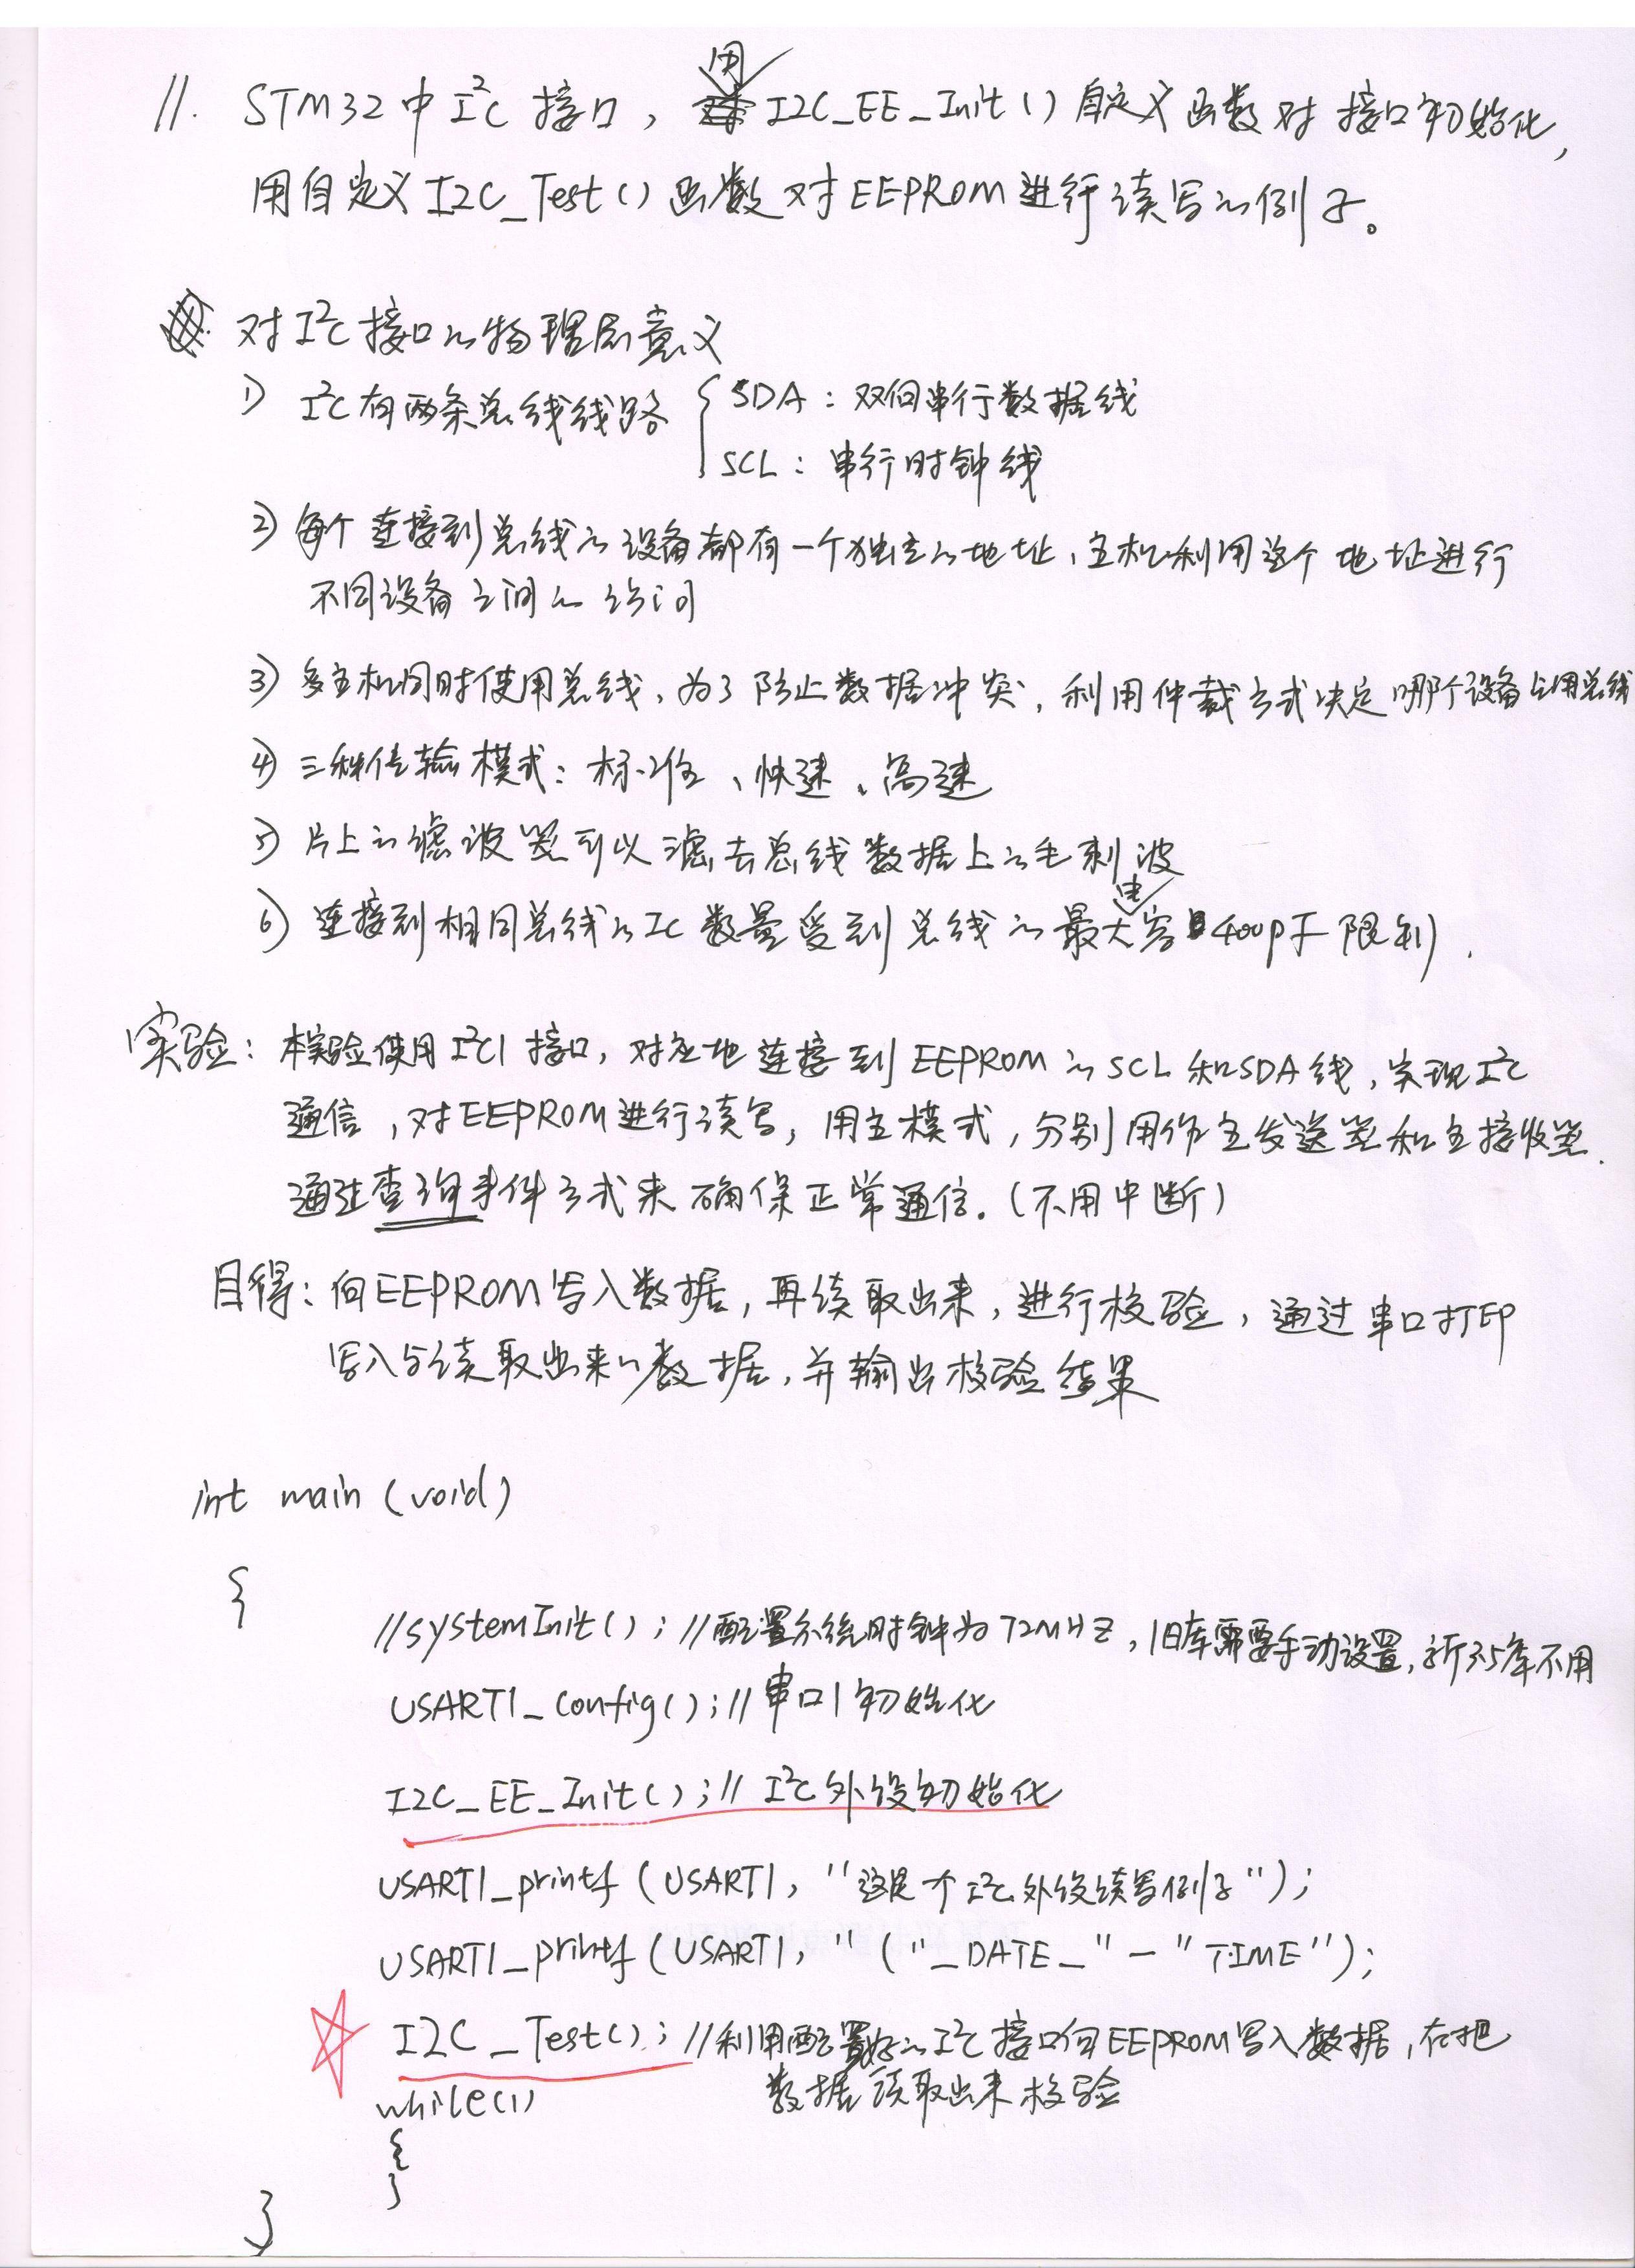 11. STM32中I²C接口，用I2C_EE_Init()自定义函数对接口初始化，
用自定义I2C_Test()函数对EEPROM进行读写的例子。
对I²C接口的物理层意义
1) I²C有两条总线线路 { SDA：双向串行数据线
SCL：串行时钟线
2) 每个连接到总线的设备都有一个独立的地址、主机利用这个地址进行
不同设备之间的访问
3) 多主机同时使用总线、为了防止数据冲突，利用仲裁方式决定哪个设备占用总线
4) 三种传输模式：标准、快速、高速
5) 片上的滤波器可以滤去总线数据上的毛刺波
6) 连接到相同总线的IC数量受到总线的最大电容400pF限制.
实验：本实验使用I²C1接口，对应地连接到EEPROM的SCL和SDA线，实现I²C
通信，对EEPROM进行读写，用主模式，分别用作主发送器和主接收器.
通过查询事件方式来确保正常通信.(不用中断)
目得：向EEPROM写入数据，再读取出来，进行校验，通过串口打印
写入与读取出来的数据，并输出校验结果
int main (void)
{
//systemInit(); //配置系统时钟为72MHZ，旧库需要手动设置，新3.5库不用
USART1_config();//串口1初始化
I2C_EE_Init();// I²C外设初始化
USART1_printf (USART1, "这是个I²C外设读写例子");
USART1_printf (USART1, " ("_DATE_" — "TIME");
I2C_Test(); //利用配置好的I²C接口向EEPROM写入数据，在把
while(1) 数据读取出来校验
{
}
}